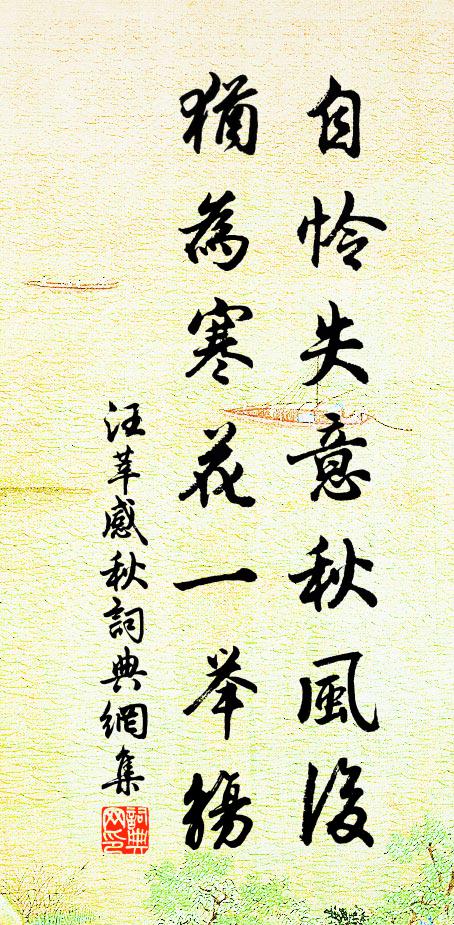 自怜失意秋風後
猶為寒花一举觴
汪莘感秋詞典網集
詞典網印